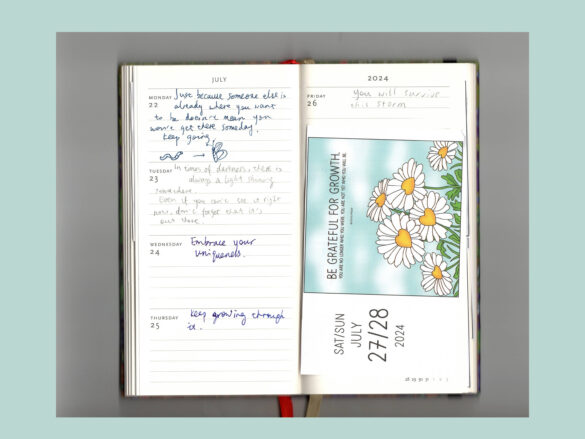 JULY
MONDAY
22
Just because someone else is
already where you want
to be doesn't mean you
won't get there someday.
keep going.
TUESDAY
23
In times of darkness, there is
always a light shining
somewhere.
Even if you can't see it right
now, don't forget that it's
out there.
WEDNESDAY
24
Embrace your
uniqueness.
THURSDAY
25
keep growing through
it.
2024
FRIDAY
26
You will survive
this storm
BE GRATEFUL FOR GROWTH.
YOU ARE NO LONGER WHO YOU WERE. YOU ARE NOT YET WHO YOU WILL BE.
SAT/SUN
JULY
27/28
2024